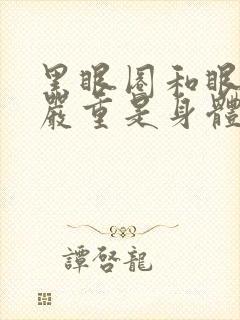 黑眼圈和眼
嚴重是身體
譚啓龍